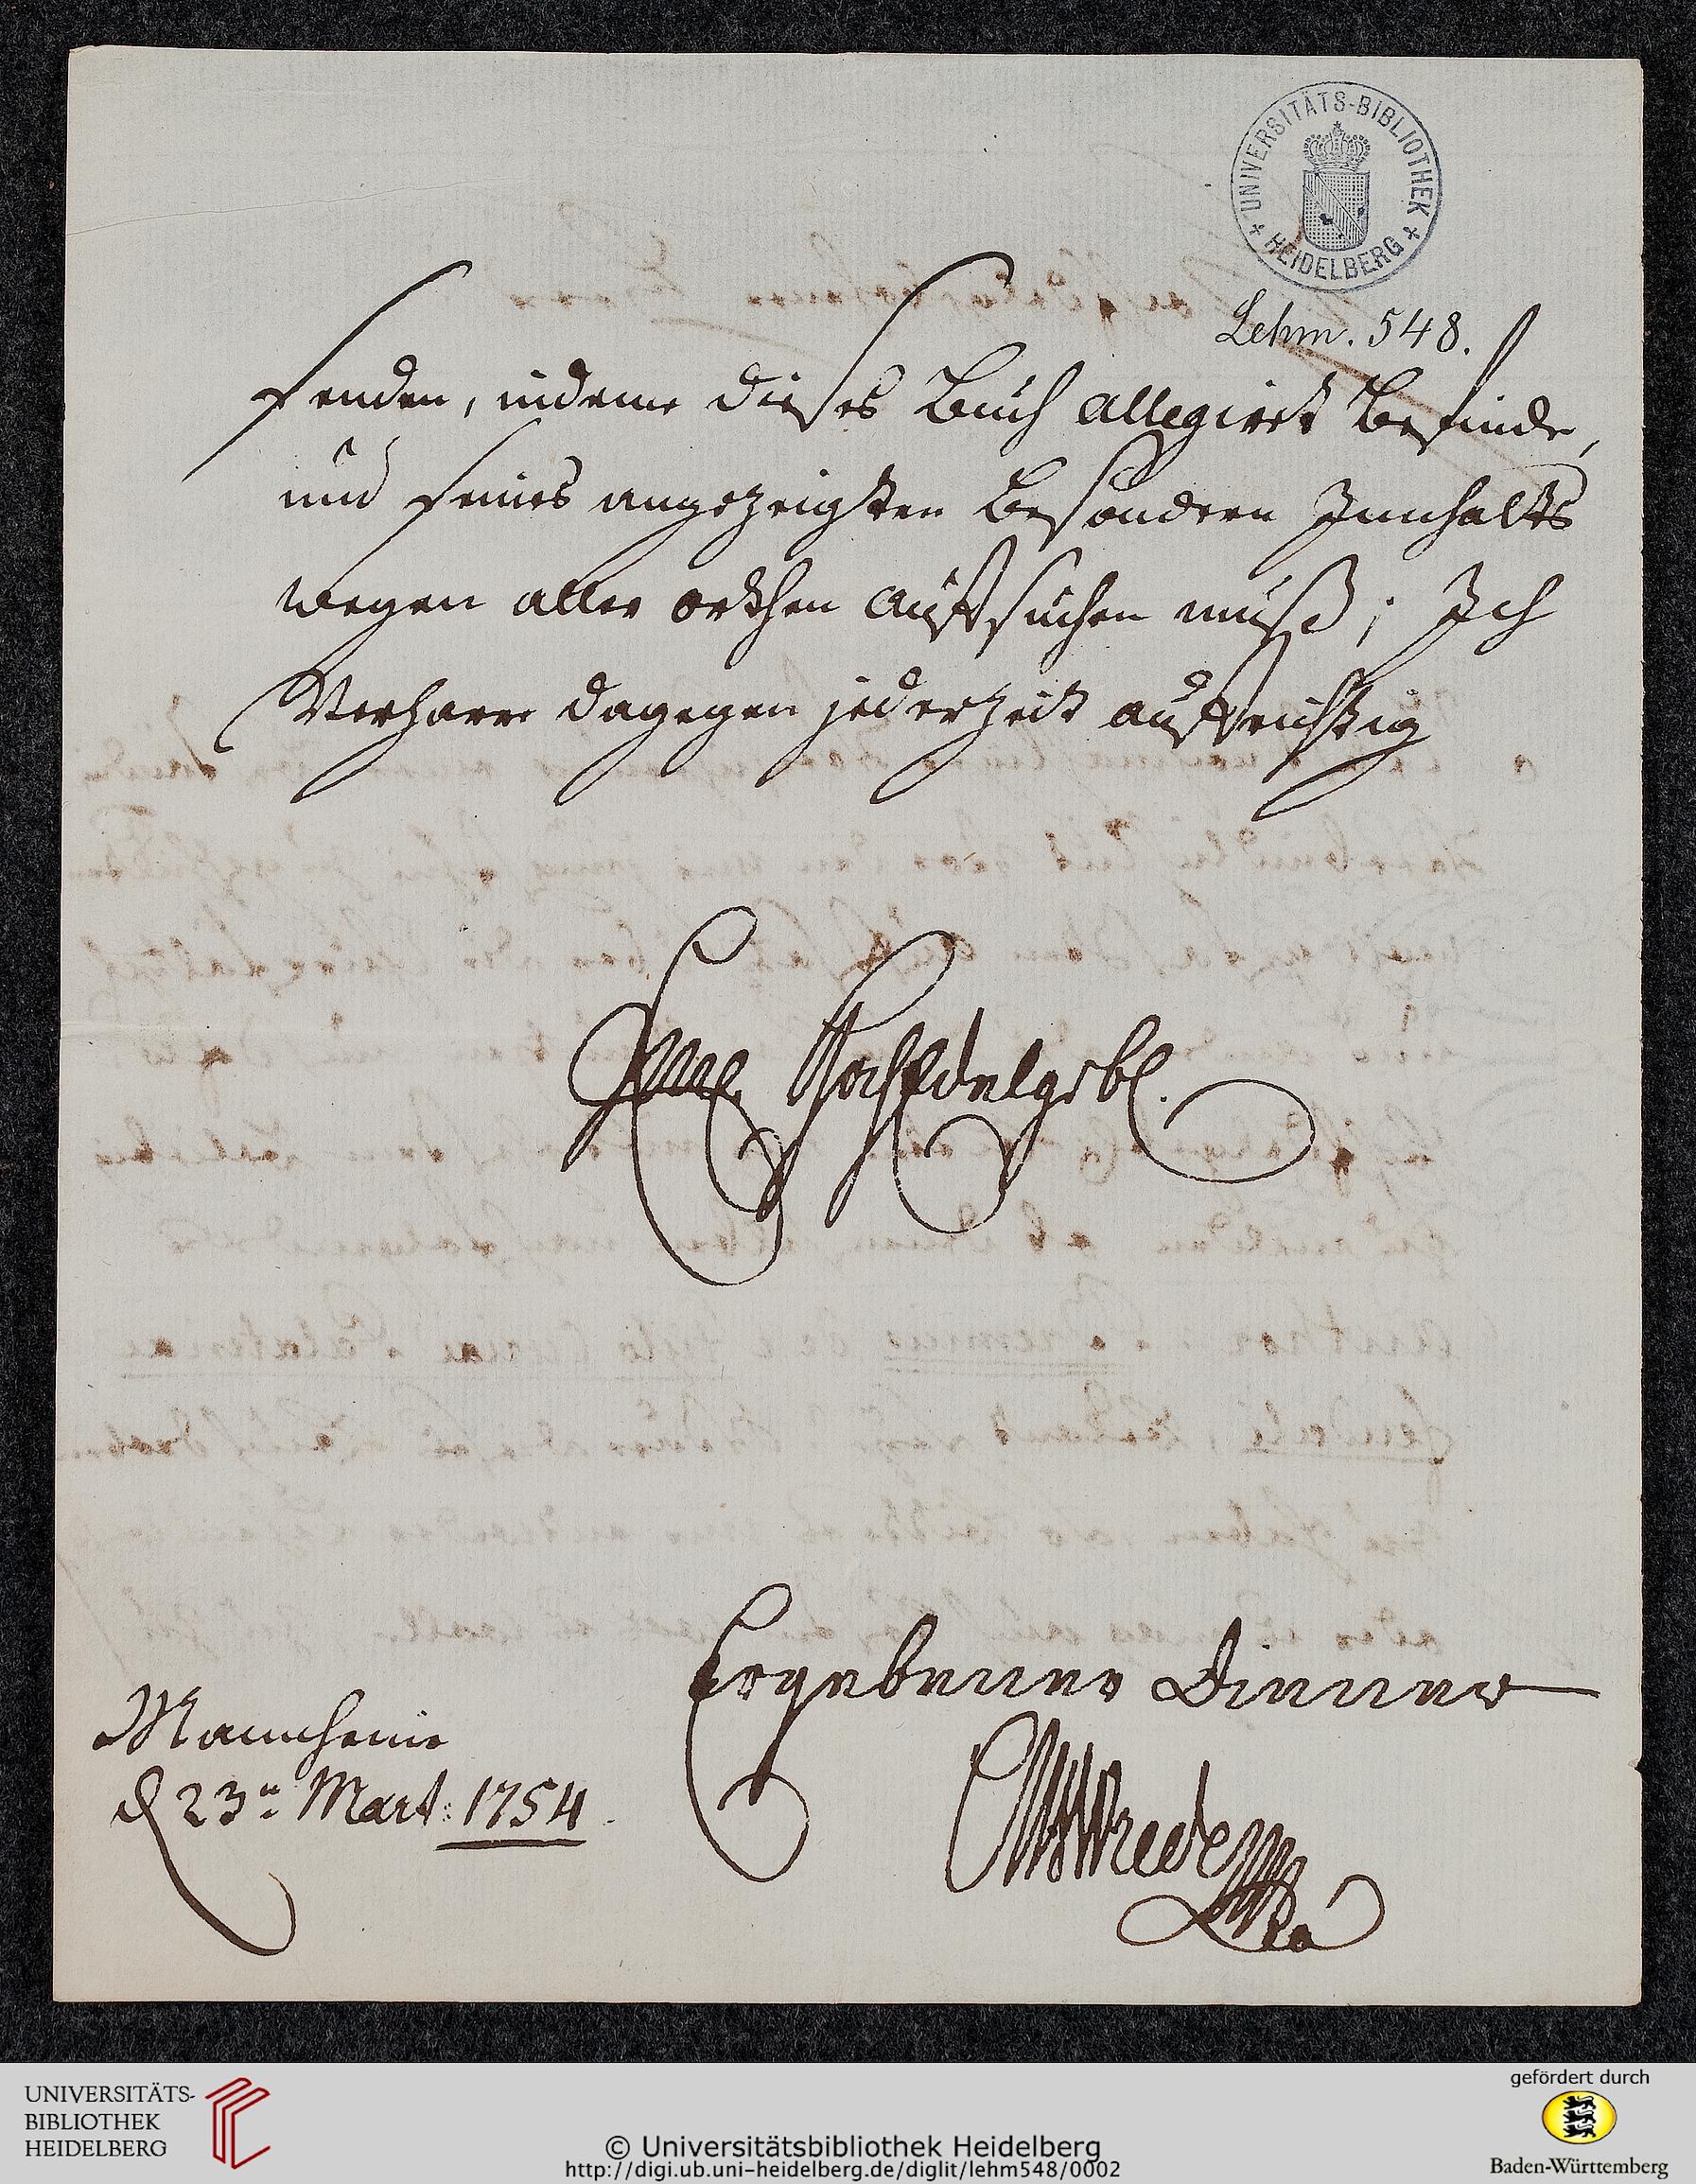 UNIVERSITÄTS-BIBLIOTHEK
HEIDELBERG
Lehm. 548.
senden, indeme dieses Buch allegirt befinde,
und seines angezeigten besondern Innhalts
wegen aller orthen auffsuchen muß; Ich
Verharre dagegen jederzeit auffrichtig
Hochedelgebl.
Ergebenner Dienner
Mannheim
d 23n Mart: 1754.
Wrede
UNIVERSITÄTS-
BIBLIOTHEK
HEIDELBERG
© Universitätsbibliothek Heidelberg
http://digi.ub.uni-heidelberg.de/diglit/lehm548/0002
gefördert durch
Baden-Württemberg